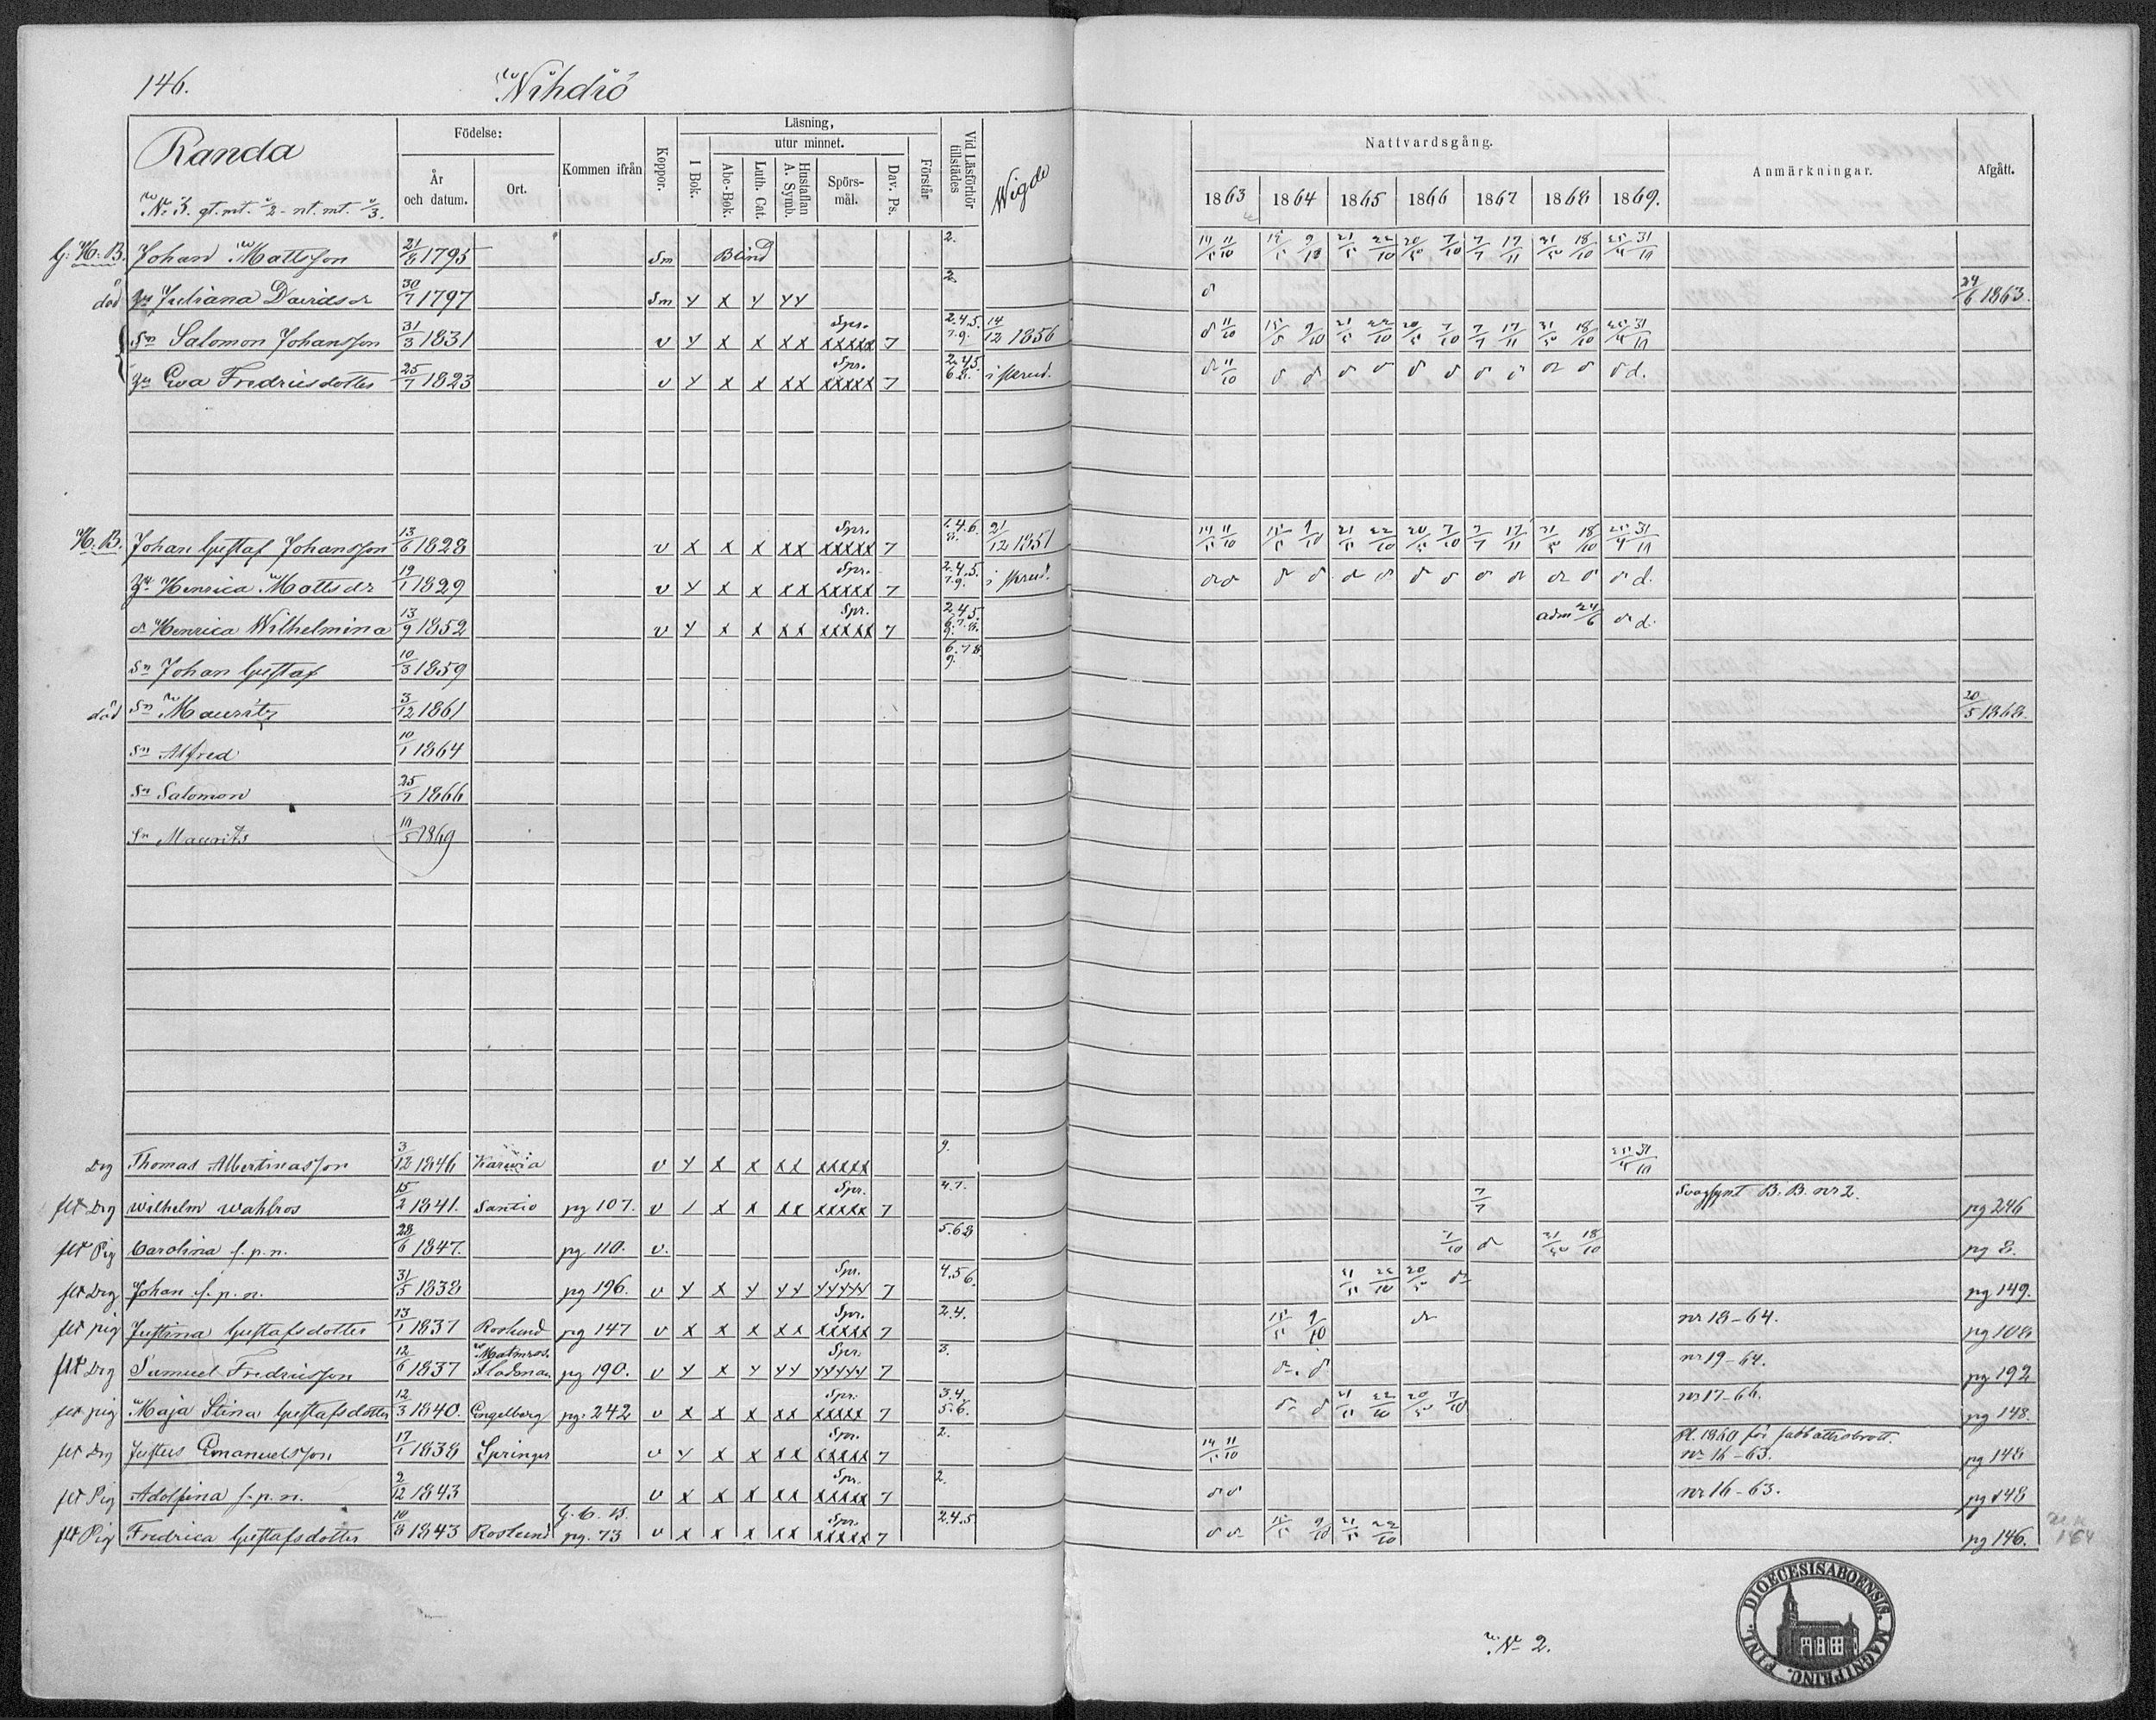 146. Nihdiö
Randa
N: 3. gt. mt. 1/2 - nt. mt. 1/3.
Födelse:
År och datum.
Ort.
Kommen ifrån
Koppor.
Läsning,
I Bok.
utur minnet.
Abc-Bok.
Luth. Cat.
Hustaflan A. Symb.
Spörs-mål.
Dav. Ps.
Förstår
Vid Läsförhör tillstädes
Wigde
Nattvardsgång.
1863 1864 1865 1866 1867 1868 1869.
Anmärkningar.
Afgått.
G. H. B. Johan Mattsson 21/8 1795 Sm Blind 2. 14/5 11/10 15/5 9/10 21/5 22/10 20/5 7/10 7/7 17/11 31/5 18/10 25/4 31/10
död hu Juliana Davidsdr 30/7 1797 Sm y x y y y 2. 24/6 1863.
Sn Salomon Johansson 31/3 1831 v y x x x x Spr. xxxxx 7 2.4.5. 7.9. 14/12 1856 11/10 15/5 9/10 21/5 22/10 20/5 7/10 7/7 17/11 31/5 18/10 25/4 31/10
hu Eva Fredricsdotter 25/7 1823 v y x x x x Spr. xxxxx 7 2.4.5. 6.8. i skrud. 11/10 d.
H. B. Johan Gustaf Johansson 13/6 1828 v x x x x x Spr. xxxxx 7 2.4.6. 8. 21/12 1851 14/5 11/10 15/5 9/10 21/5 22/10 20/5 7/10 7/7 17/11 31/5 18/10 25/4 31/10
hu Henrica Mattsdr 19/1 1829 v y x x x x Spr. xxxxx 7 2.4.5. 7.9. i skrud. d.
dr Henrica Wilhelmina 13/9 1852 v y x x x x Spr. xxxxx 7 2.4.5. 6.7.8. 9. adm 24/6 d.
Sn Johan Gustaf 10/3 1859 6.7.8. 9.
död Sn Mauritz 3/12 1861 20/5 1868.
Sn Alfred 10/1 1864
Sn Salomon 25/7 1866
Sn Maurits 10/5 1869
Drg Thomas Albertinasson 3/12 1846 Karuvia v y x x x x xxxxx 9. 25/4 31/10
flt Drg Wilhelm Wahlros 15/2 1841. Santio pg 107. v / x x x x Spr. xxxxx 7 4.7. 7/7 Svagsynt B. B. nr 2. pg 246
flt Pig Carolina f. p. n. 28/6 1847. pg 110. v. 5.6.8 7/10 31/5 18/10 pg 8.
flt Drg Johan f. p. n. 31/5 1838 pg 196. v y x y y y Spr. yyyyy 7 4.5.6. 21/5 22/10 20/5 pg 149.
flt pig Justina Gustafsdotter 13/1 1837 Roslund pg 147 v x x x x x Spr. xxxxx 7 2.4. 15/5 9/10 nr 18-64. pg 108
flt Drg Samuel Fredricsson 12/6 1837 Malmros. pg 190. v y x y y y Spr. yyyyy 7 3. nr 19-64. pg 192
flt pig Maja Stina Gustafsdotter 12/3 1840. Engelberg pg. 242 v x x x x x Spr. xxxxx 7 3.4. 5.6. 21/5 22/10 20/5 7/10 nr 17-66. pg 148.
flt Drg Justus Emanuelsson 17/1 1838 Springer v y x x x x Spr. xxxxx 7 2. 14/5 11/10 Pl. 1860 för sabbatsbrott. nr 16-63. pg 148
flt Pig Adolfina f. p. n. 2/12 1843 v x x x x x Spr. xxxxx 7 2. nr 16-63. pg 148
flt Pig Fredrica Gustafsdotter 10/8 1843 Roslund G. C. B. pg. 73 v x x x x x Spr. xxxxx 7 2.4.5 15/5 9/10 21/5 22/10 pg 146. 164
No 2.
DIOECESIS ABOENSIS. MAGNI PRINC. FINL.